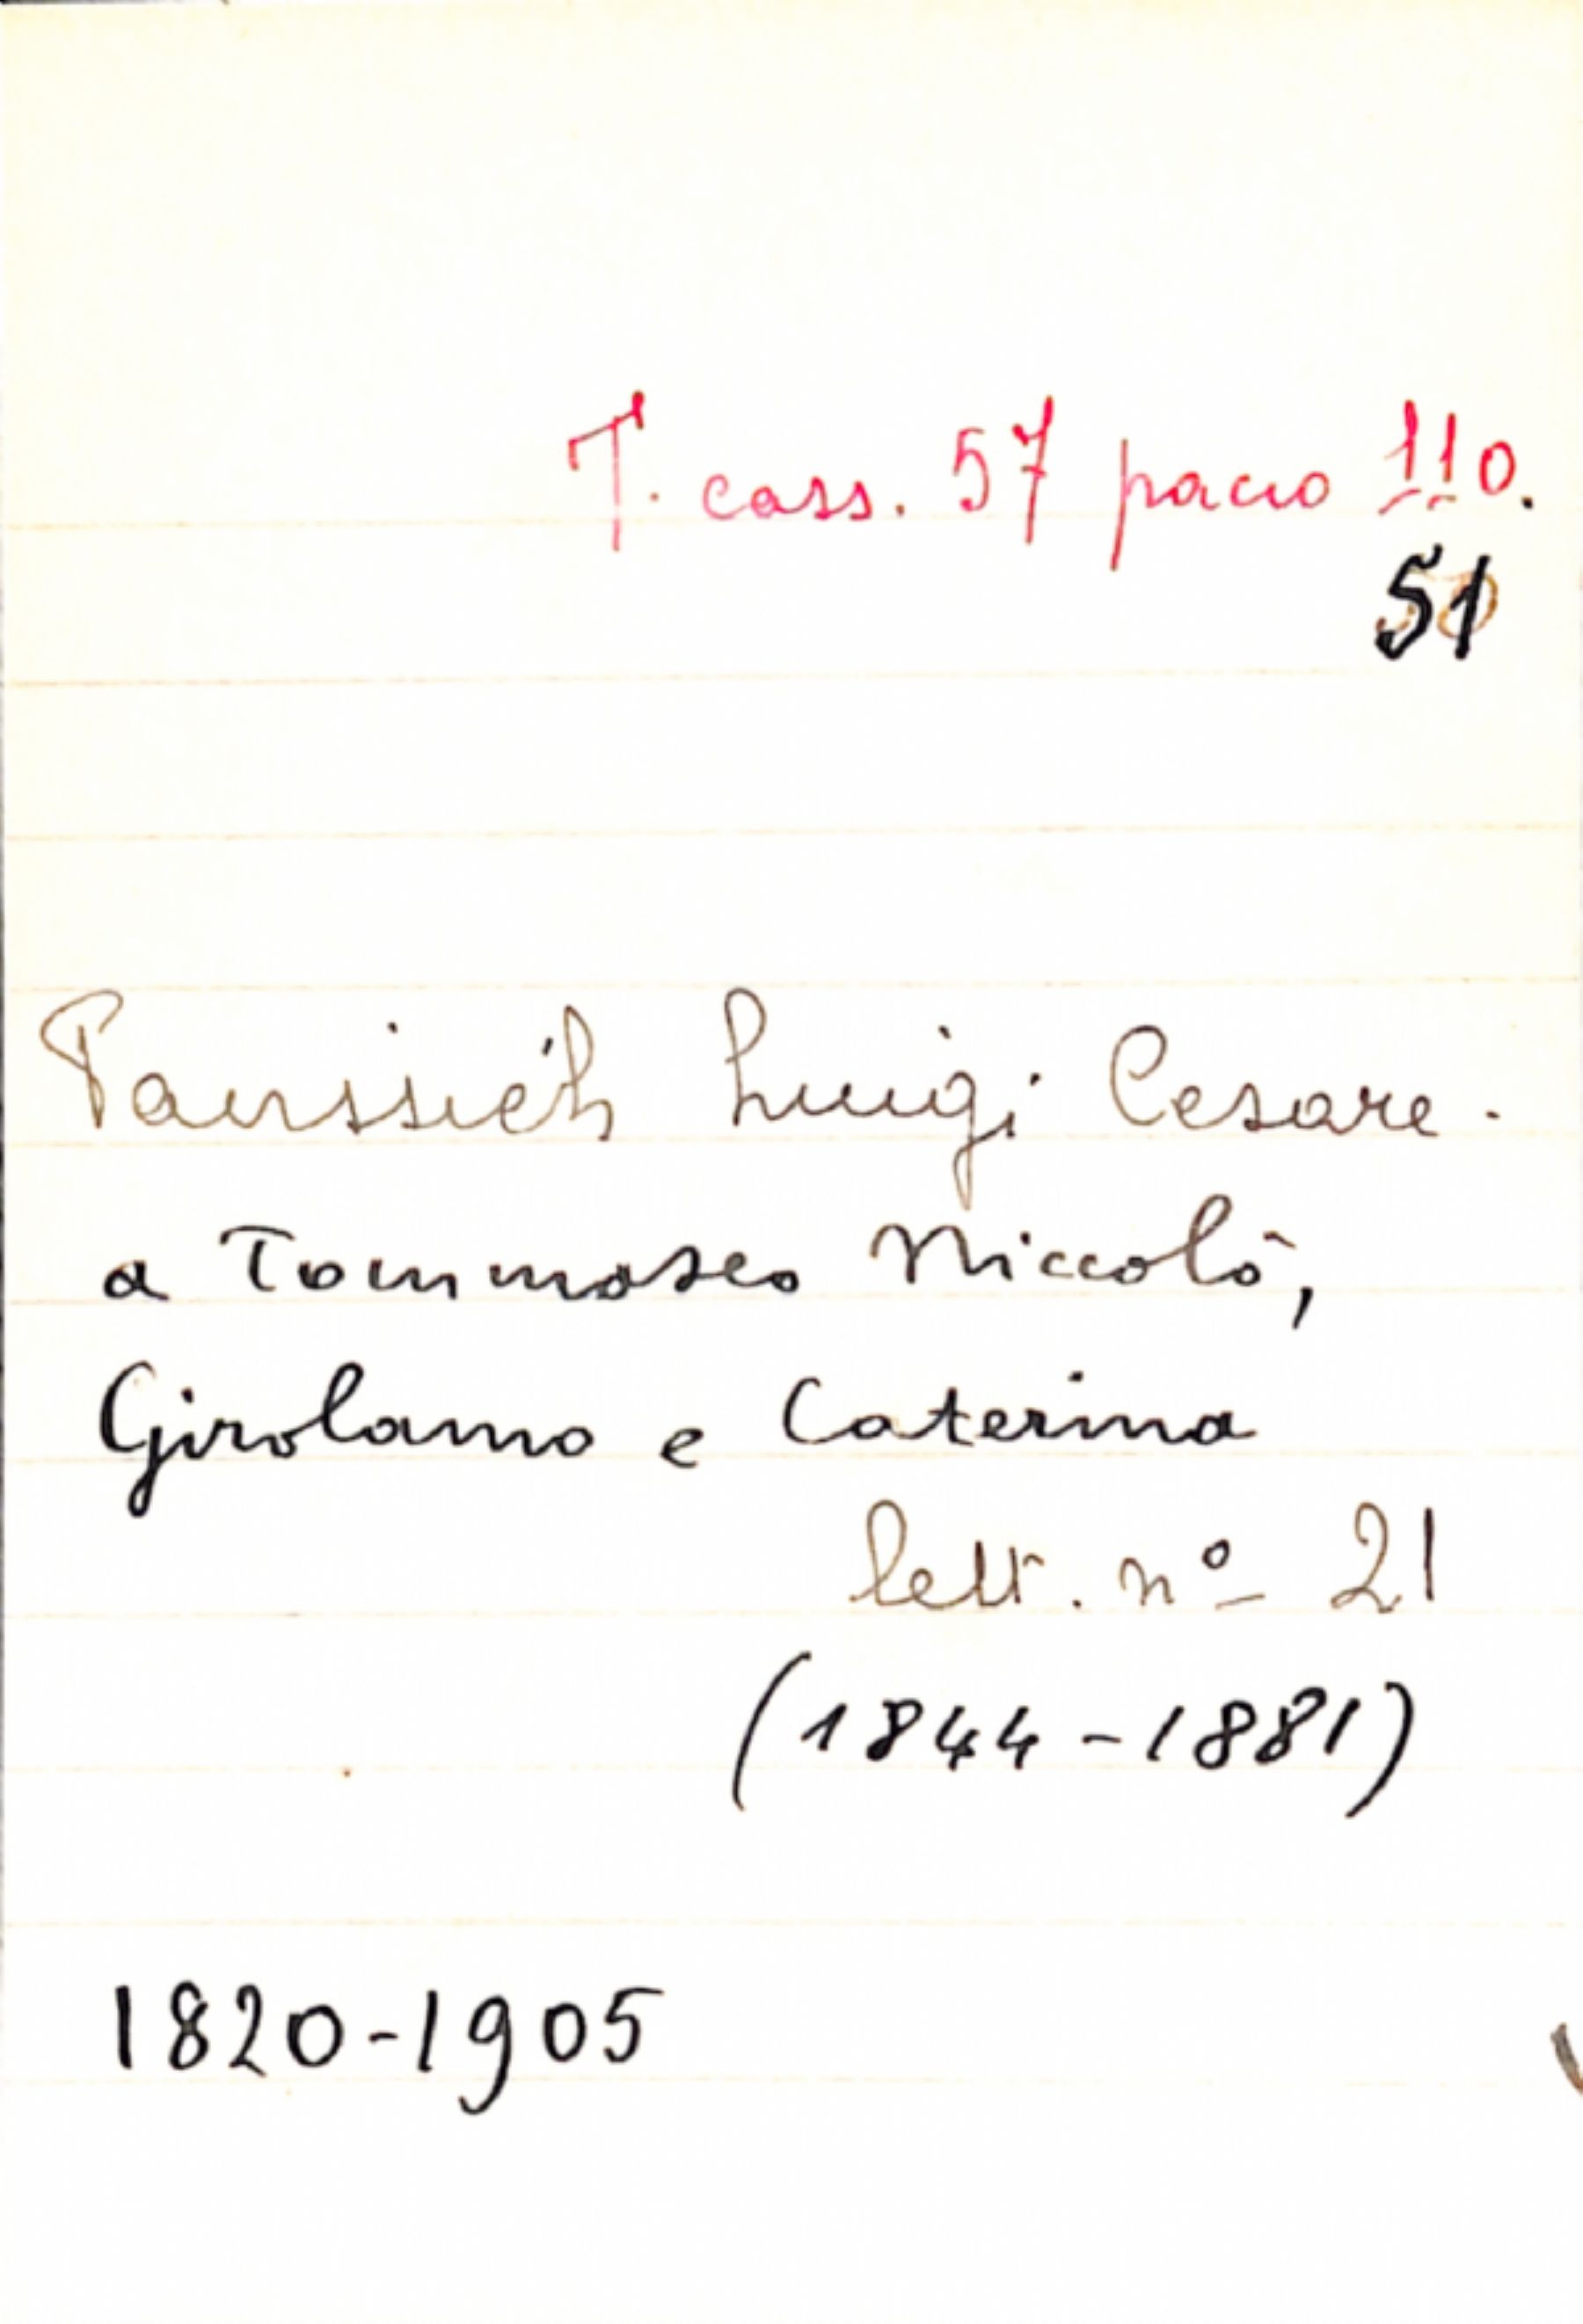 T. cass. 57 pacco 110.
51
Paussich Luigi Cesare.
a Tommaseo Niccolò,
Girolamo e Caterina
lett. nº 21
(1844-1881)
1820-1905